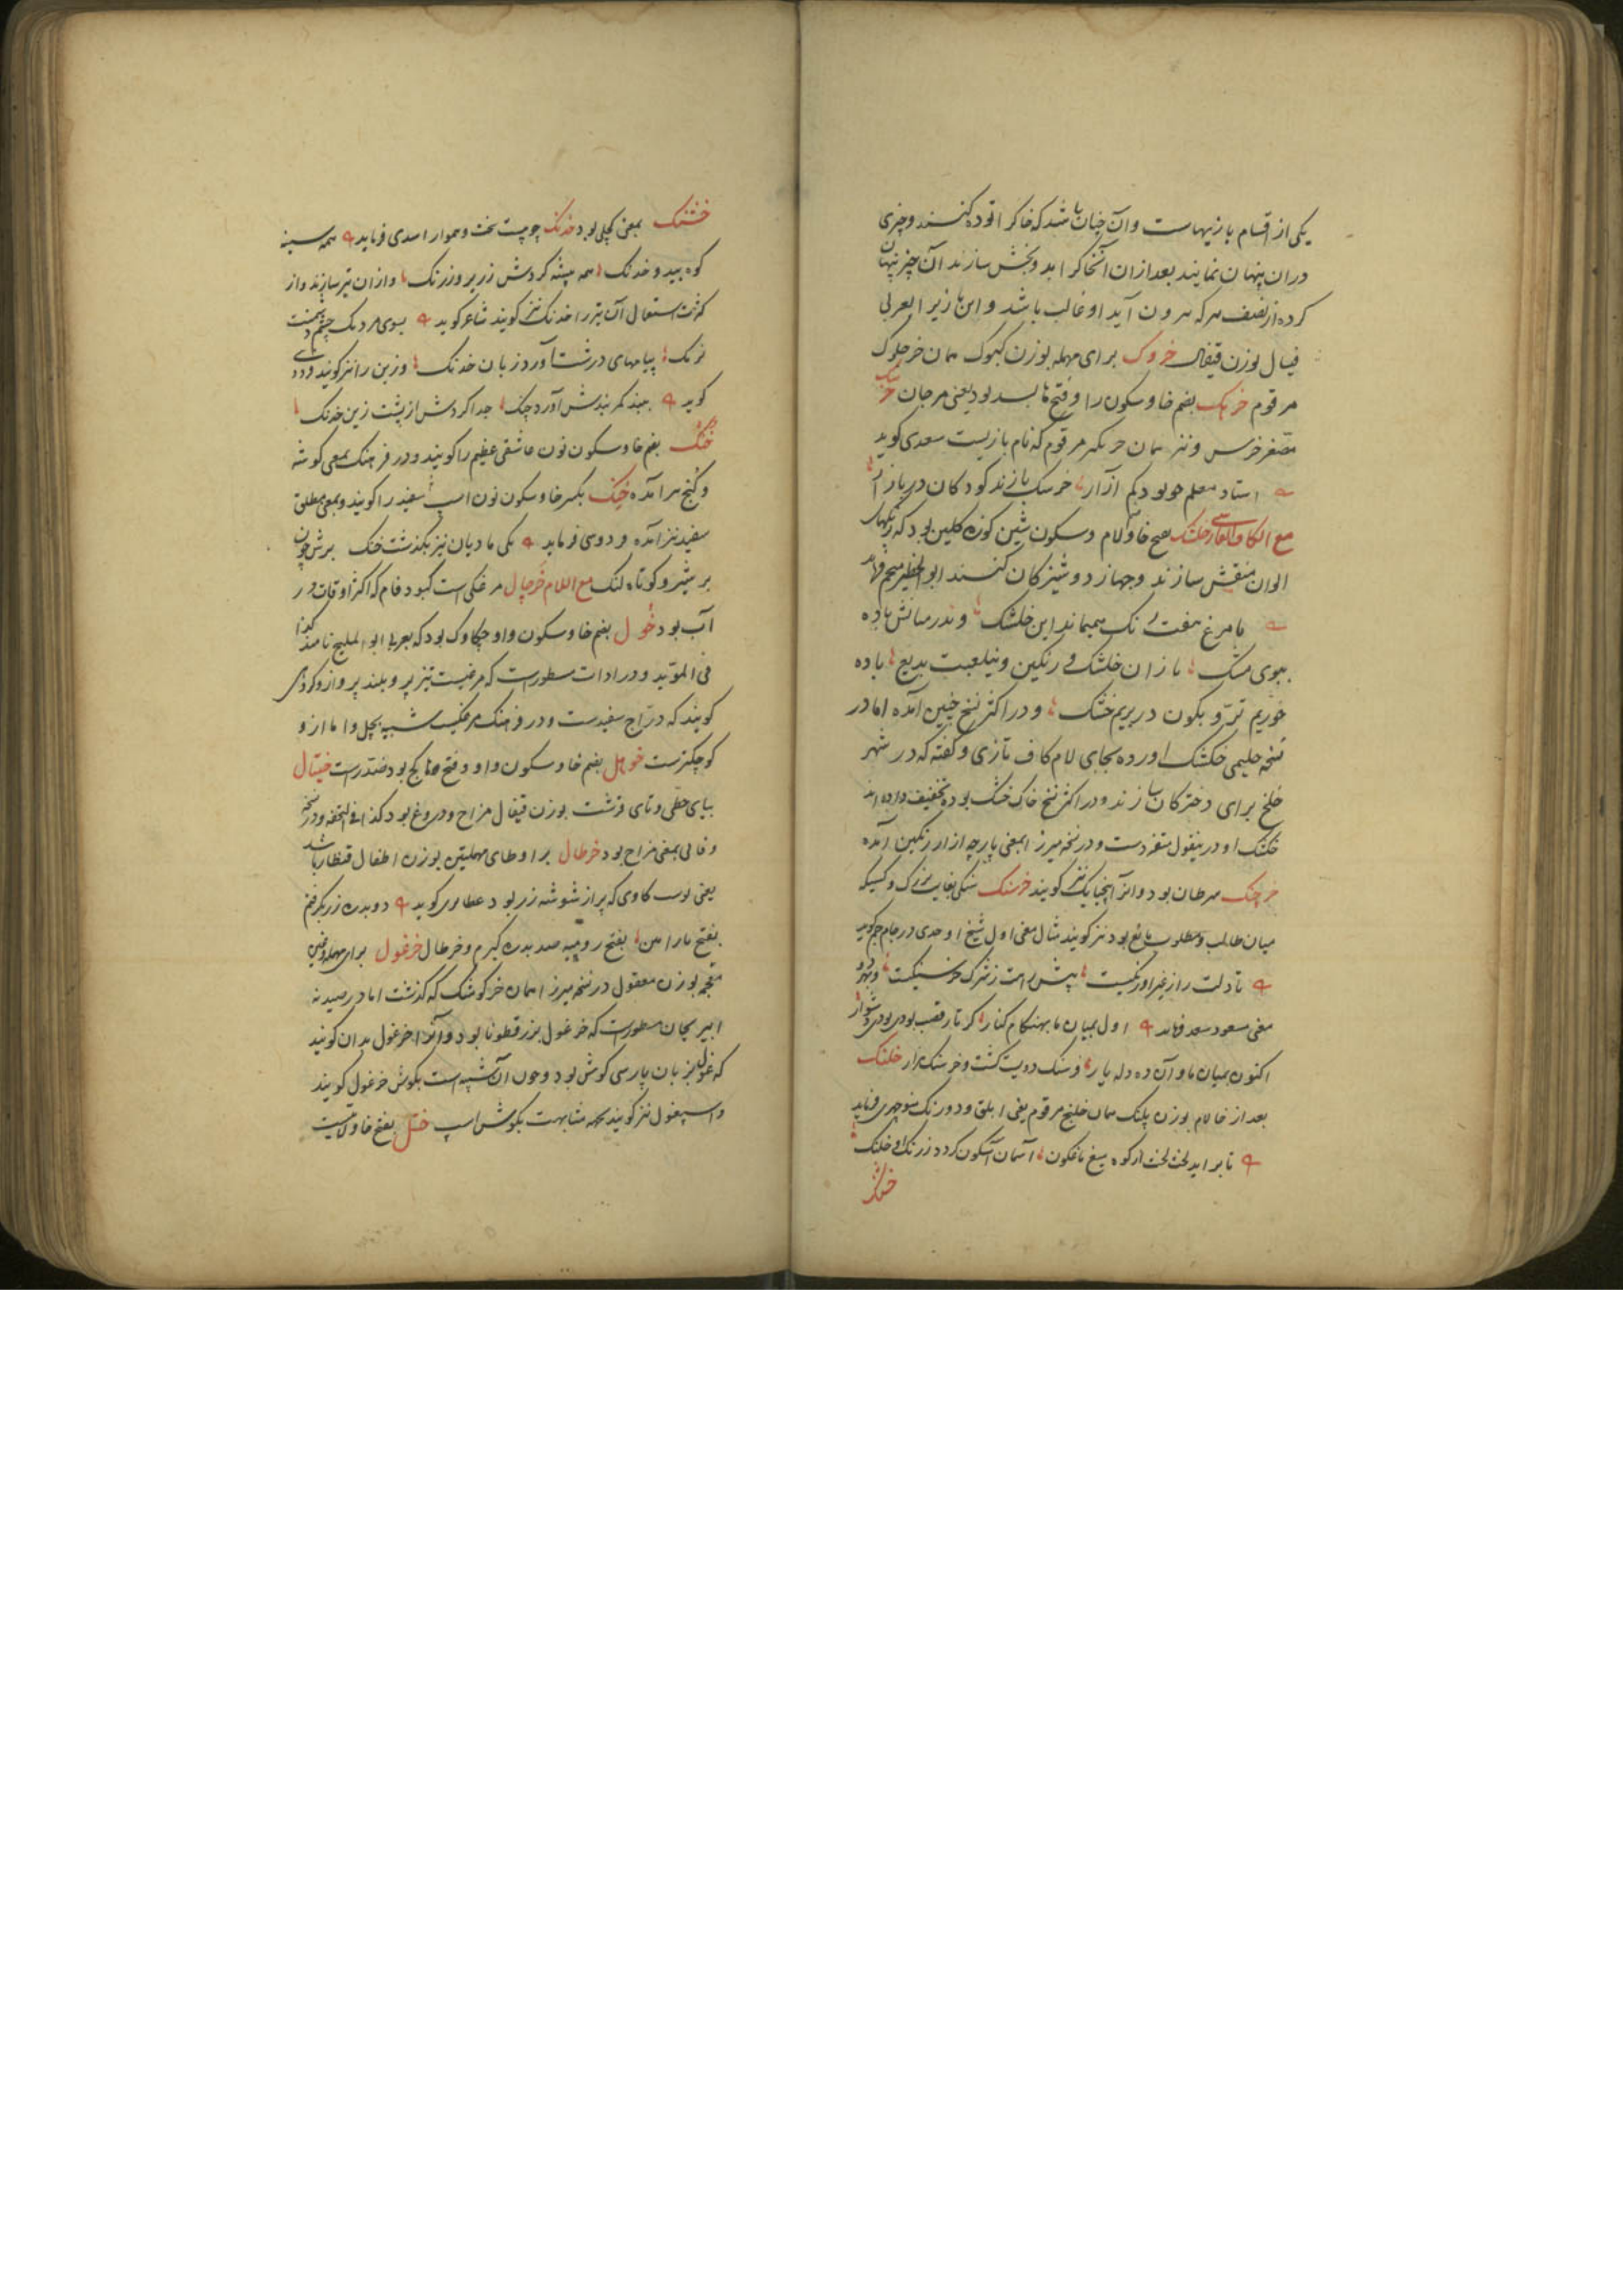 یکی از اقسام بازیهاست و آن چنان باشد که خاک را توده کنند و چیزی
در ان پنهان نمایند بعد از ان آنخاک را بد و بخش سازند آن چیز پنهان
کرده از نصف هر که بیرون آید او غالب باشد و این بازی را بعربی
فیال بوزن قیفال خروک برای مهمله بوزن کبوک همان خر جلوک
مرقوم خربک بضم خا و سکون را و فتح با بسد بود یعنی مرجان خرسک
مصغر خرس و نیز همان مرقوم که نام بازیست سعدی کوید
استاد معلم چو بود کم آزار خرسک بازند کودکان در بازار
مع الکاف الفارسی خلشک بفتح خا و لام و سکون شین کوزه کلین بود که برنکهای
الوان منقش سازند و جهاز دوشیزکان کنند ابو الخطیر منجم فرماید
با مرغ هفت رنک همیماند این خلشک و ندر میانش باده
ببوی مشک نازان خلشک رنکین و بلعبت بدیع باده
خوریم تر و بکون در بریم خشک و در اکثر نسخ چنین آمده اما در
نسخه حلیمی خکشک اورده بجای لام کاف تازی و کفته که در شهر
خلخ برای دخترکان سازند و در اکثر نسخ خاک خشک بوده تخفیف داده اند
خشک او درینقول متفردست و در نسخه میرزا بمعنی پارچه ازار رنکین آمده
خرچنک سرطان بود و انرا پنجپایک نیز کویند خرسنک سنکی بغایت بزرک و کسیکه
میان طالب و مطلوب مانع بود نیز کویند مثال معنی اول شیخ اوحدی در جام جم کوید
تا دلت را ز غیر او رنکیست پیش راهت ز شرک خرسنکیست و بهر دو
معنی مسعود سعد فرماید اول بمیان ما بهنکام کنار کر تار قصب بودی بودی دشوار
اکنون بمیان ما و آن ده دله یار فرسنک دویست کشت و خرسنک هزار خلنک
بعد از خا لام بوزن پلنک همان خلنج مرقوم یعنی ابلق و دو رنک منوچهری فرماید
تا بر اید لخت لخت از کوه میغ ماغکون آسمان آبکون کردد ز رنک او خلنک
خشنک
خشنک بمعنی کچلی بود خدنک چوبیست سخت و هموار اسدی فرماید همه سینه
کوه بید و خدنک همه بیشه کردش زریر و زرنک و از ان تیر سازند و از
کثرت استعمال آن تیر را خدنک نیز کویند شاعر کوید بسوی مردمک چشم دشمنت
نرنک پیامهای درشت آورد زبان خدنک و زین را نیز کویند فردوسی
کوید ببند کمربندش آورد چنک جدا کردش از پشت زین خدنک
خنک بضم خا و سکون نون عاشقی عظیم را کویند و در فرهنک بمعنی کوشه
و کنج هم آمده خنک بکسر خا و سکون نون اسپ سفید را کویند و بمعنی مطلق
سفید نیز آمده فردوسی فرماید یکی مادیان نیز بکذشت خنک برش چون
بر شیر و کوتاه لنک مع اللام خرچال مرغکی است کبود فام که اکثر اوقات در
آب بود خول بضم خا و سکون واو چکاوک بود که بعربی ابو الملیح نامند کذا
فی المؤید و در ادات مسطورست که مرغیست تیز پر و بلند پرواز و کروهی
کویند که درّاج سفیدست و در فرهنک مرغکیست شبیه بچل وا ما از و
کوچکترست خوهل بضم خا و سکون واو و فتح ها کج بود ضد راست خیتال
بیای حطی و تای قرشت بوزن قیفال مزاح و دروغ بود کذا فی التحفه و در نسخه
وفائی بمعنی مزاح بود خرطال برا و طای مهملتین بوزن اطفال قنطار باشد
یعنی پوست کاوی که پر از شوشه زر بود عطار کوید دو بدره زر بکرفتم
بفتح ما را من بفتح رومیه صد بدره کیرم و خرطال خرغول برای مهمله و غین
معجمه بوزن معقول در نسخه میرزا همان خرکوشک که کذشت اما در صیدنه
ابو ریحان مسطورست که خرغول بزر قطونا بود و آنرا خرغول بدان کویند
که غول بزبان پارسی کوش بود و چون آن شبیه است بکوش خر غول کویند
و اسپغول نیز کویند بجهه مشابهت بکوش اسپ ختل بفتح خا و لایتیست